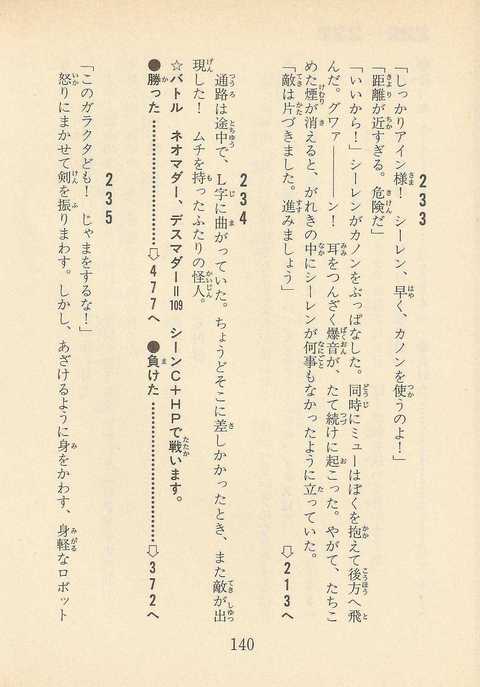 233
「しっかりアイン様！　シーレン、早く、カノンを使うのよ！」
「距離が近すぎる。危険だ」
「いいから！」シーレンがカノンをぶっぱなした。同時にミューはぼくを抱えて後方へ飛
んだ。グワァ————ン！　耳をつんざく爆音が、たて続けに起こった。やがて、たちこ
めた煙が消えると、がれきの中にシーレンが何事もなかったように立っていた。
「敵は片づきました。進みましょう」
⇨213へ
234
通路は途中で、L字に曲がっていた。ちょうどそこに差しかかったとき、また敵が出
現した！　ムチを持ったふたりの怪人。
☆バトル　ネオマダー、デスマダー＝109　シーンC＋HPで戦います。
●勝った……………………⇨477へ　●負けた……………………⇨372へ
235
「このガラクタども！　じゃまをするな！」
怒りにまかせて剣を振りまわす。しかし、あざけるように身をかわす、身軽なロボット
140